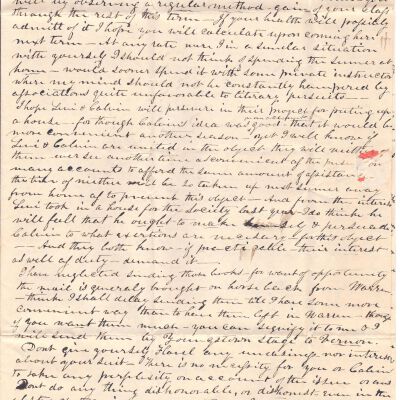 will by observing a regular method gain of your class
through the rest of this term – If your health will possibly
admit of it I hope you will calculate upon coming here
next term – At any rate were I in a similar situation
with yourself I should not think of spending the summer at
home – would sooner spend it with some private instructor
where my mind should not be constantly hampered by
associations quite unfavorable to literary pursuits –
I hope Levi & Calvin will persevere in their project for putting up
a house – for though Calvin's idea was good that it would be
more convenient another season – yet I well know if
Levi & Calvin are united in the object they will
them ever another time as convenient as the present. On
many accounts to afford the same amount of assistance
the titles of neither will be so taken up next summer away
from home as to prevent this object – And from the interest
Levi took in a house for the Society last year I do think he
will feel that he ought to make & persuade
Calvin to what exertion is necessary for this object
– And they both know – if practicable – their interest
as well as duty – demand it –
I have neglected sending those books – for want of opportunity
the mail is generally brought on horse back from Warren
– think I shall delay sending them till I have some more
convenient way than to have them left in Warren – though
if you want them much – you can signify it to me & I
will send them by Youngstown stage to Vernon.
Dont give yourself I
about your suit – There is no necessity for you or Calvin
to take any perplexity on account of the issue or and
Dont do any thing dishonorable, or dishonest even in the